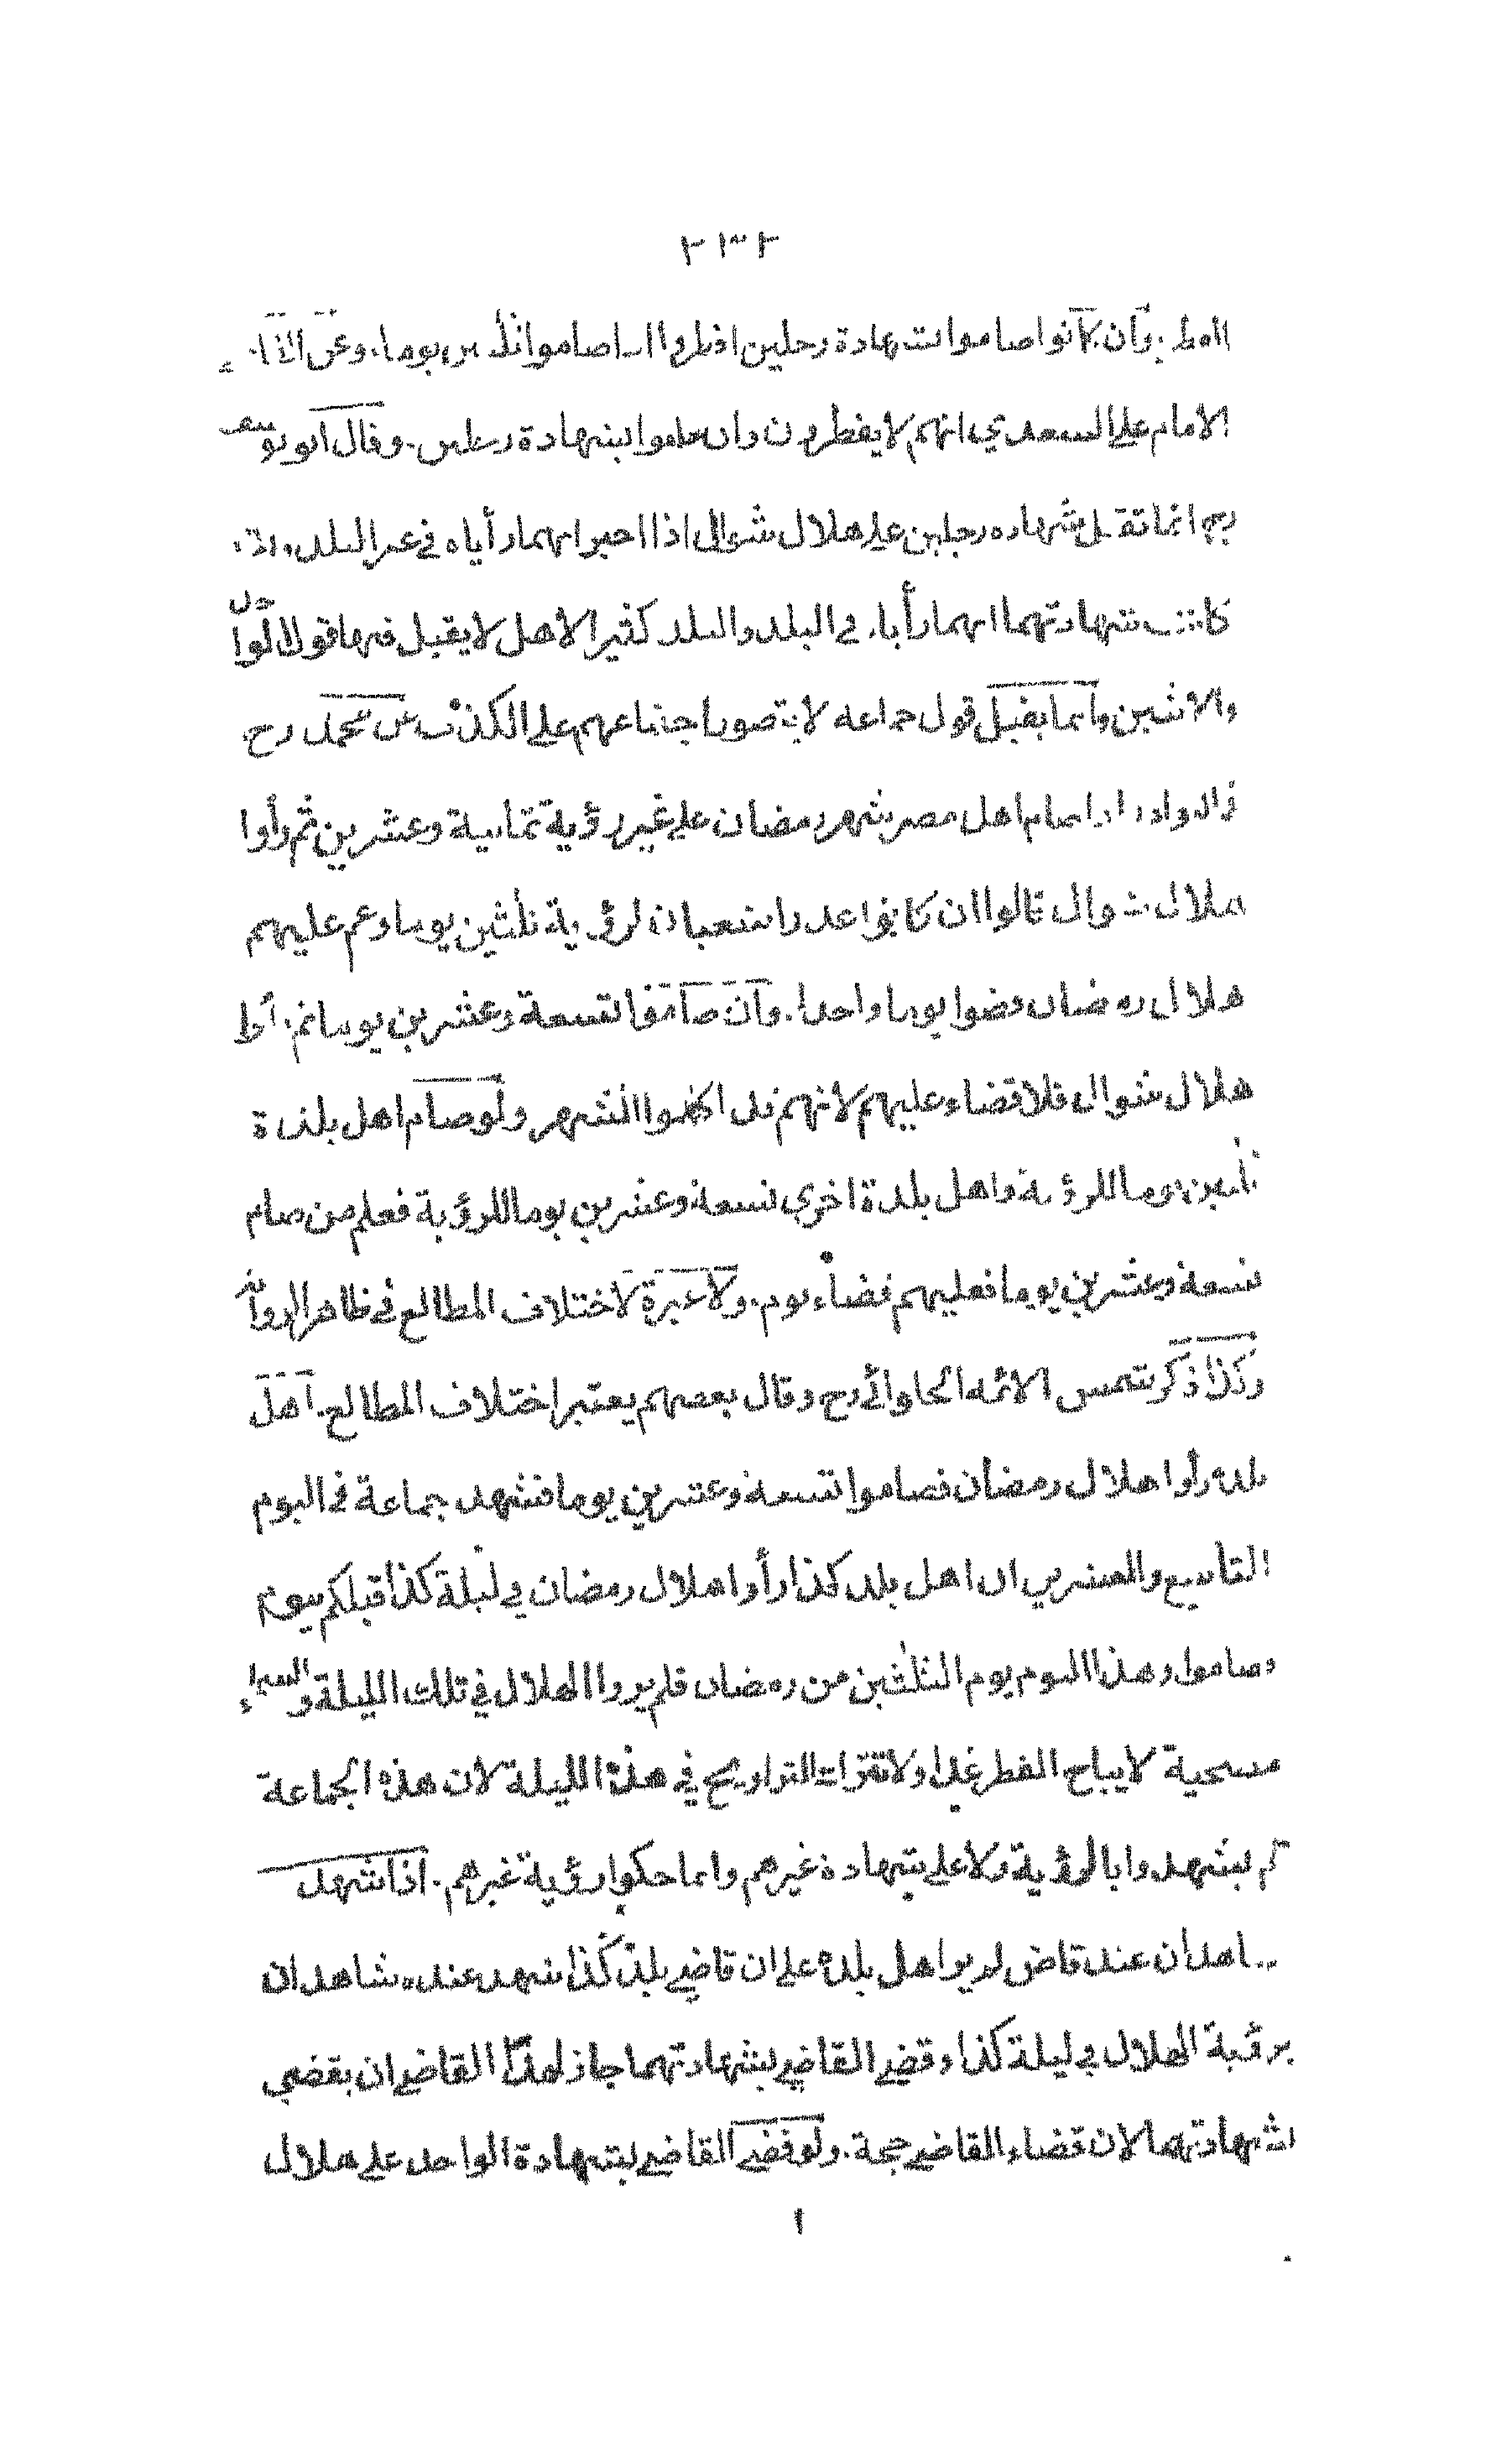 ٢٣٢
وان كانوا صاموا بشهادة رجلين افطروا اذا صاموا ثلثين يوما. وعن القا
الامام علي السعدي انهم لا يفطرون وان صاموا بشهادة رجلين. وقال ابو يوسف
رح انما تقبل شهاده رجلين علي هلال شوال اذا اخبرا انهما رأياه في غير البلد وان
كانت شهادتهما انهما رأيا. في البلد والبلد كثير الاهل لا يقبل فيها قول الواحد
والاثنين وانما يقبل قول جماعه لا يتصور اجتماعهم علي الكذب عن محمد رح
في النوادر اذا صام اهل مصر شهر رمضان علي غير رؤية ثمانية وعشرين ثم رأوا
هلال شوال قالوا ان كانوا عدوا شعبان لرؤية ثلثين يوما وغم عليهم
هلال رمضان قضوا يوما واحدا. وان صاموا تسعة وعشرين يوما ثم رأوا
هلال شوال فلا قضاء عليهم لانهم قد اكملوا الشهر ولو صام اهل بلدة
ثلثين يوما للرؤية واهل بلدة اخري تسعة وعشرين يوما للرؤية فعلم من صام
تسعة وعشرين يوما فعليهم قضاء يوم. ولا عبرة لاختلاف المطالع في ظاهر الرواية
وكذا ذكر شمس الائمه الحلوائي رح وقال بعضهم يعتبر اختلاف المطالع. اهل
بلدة رأوا هلال رمضان فصاموا تسعة وعشرين يوما فشهد جماعة في اليوم
التاسع والعشرين ان اهل بلد كذا رأوا هلال رمضان في ليلة كذا قبلكم بيوم
وصاموا وهذا اليوم يوم الثلثين من رمضان فلم يروا الهلال في تلك الليلة والسماء
مصحية لا يباح الفطر غدا ولا تترك التراويح في هذه الليلة لان هذه الجماعة
لم يشهدوا بالرؤية ولا علي شهادة غيرهم وانما حكوا رؤية غيرهم. اذا شهد
شاهدان عند قاض لم ير اهل بلده علي ان قاضي بلد كذا شهد عنده شاهدان
برؤية الهلال في ليلة كذا وقضي القاضي بشهادتهما جاز لهذا القاضي ان يقضي
بشهادتهما لان قضاء القاضي حجة. ولو قضي القاضي بشهادة الواحد علي هلال